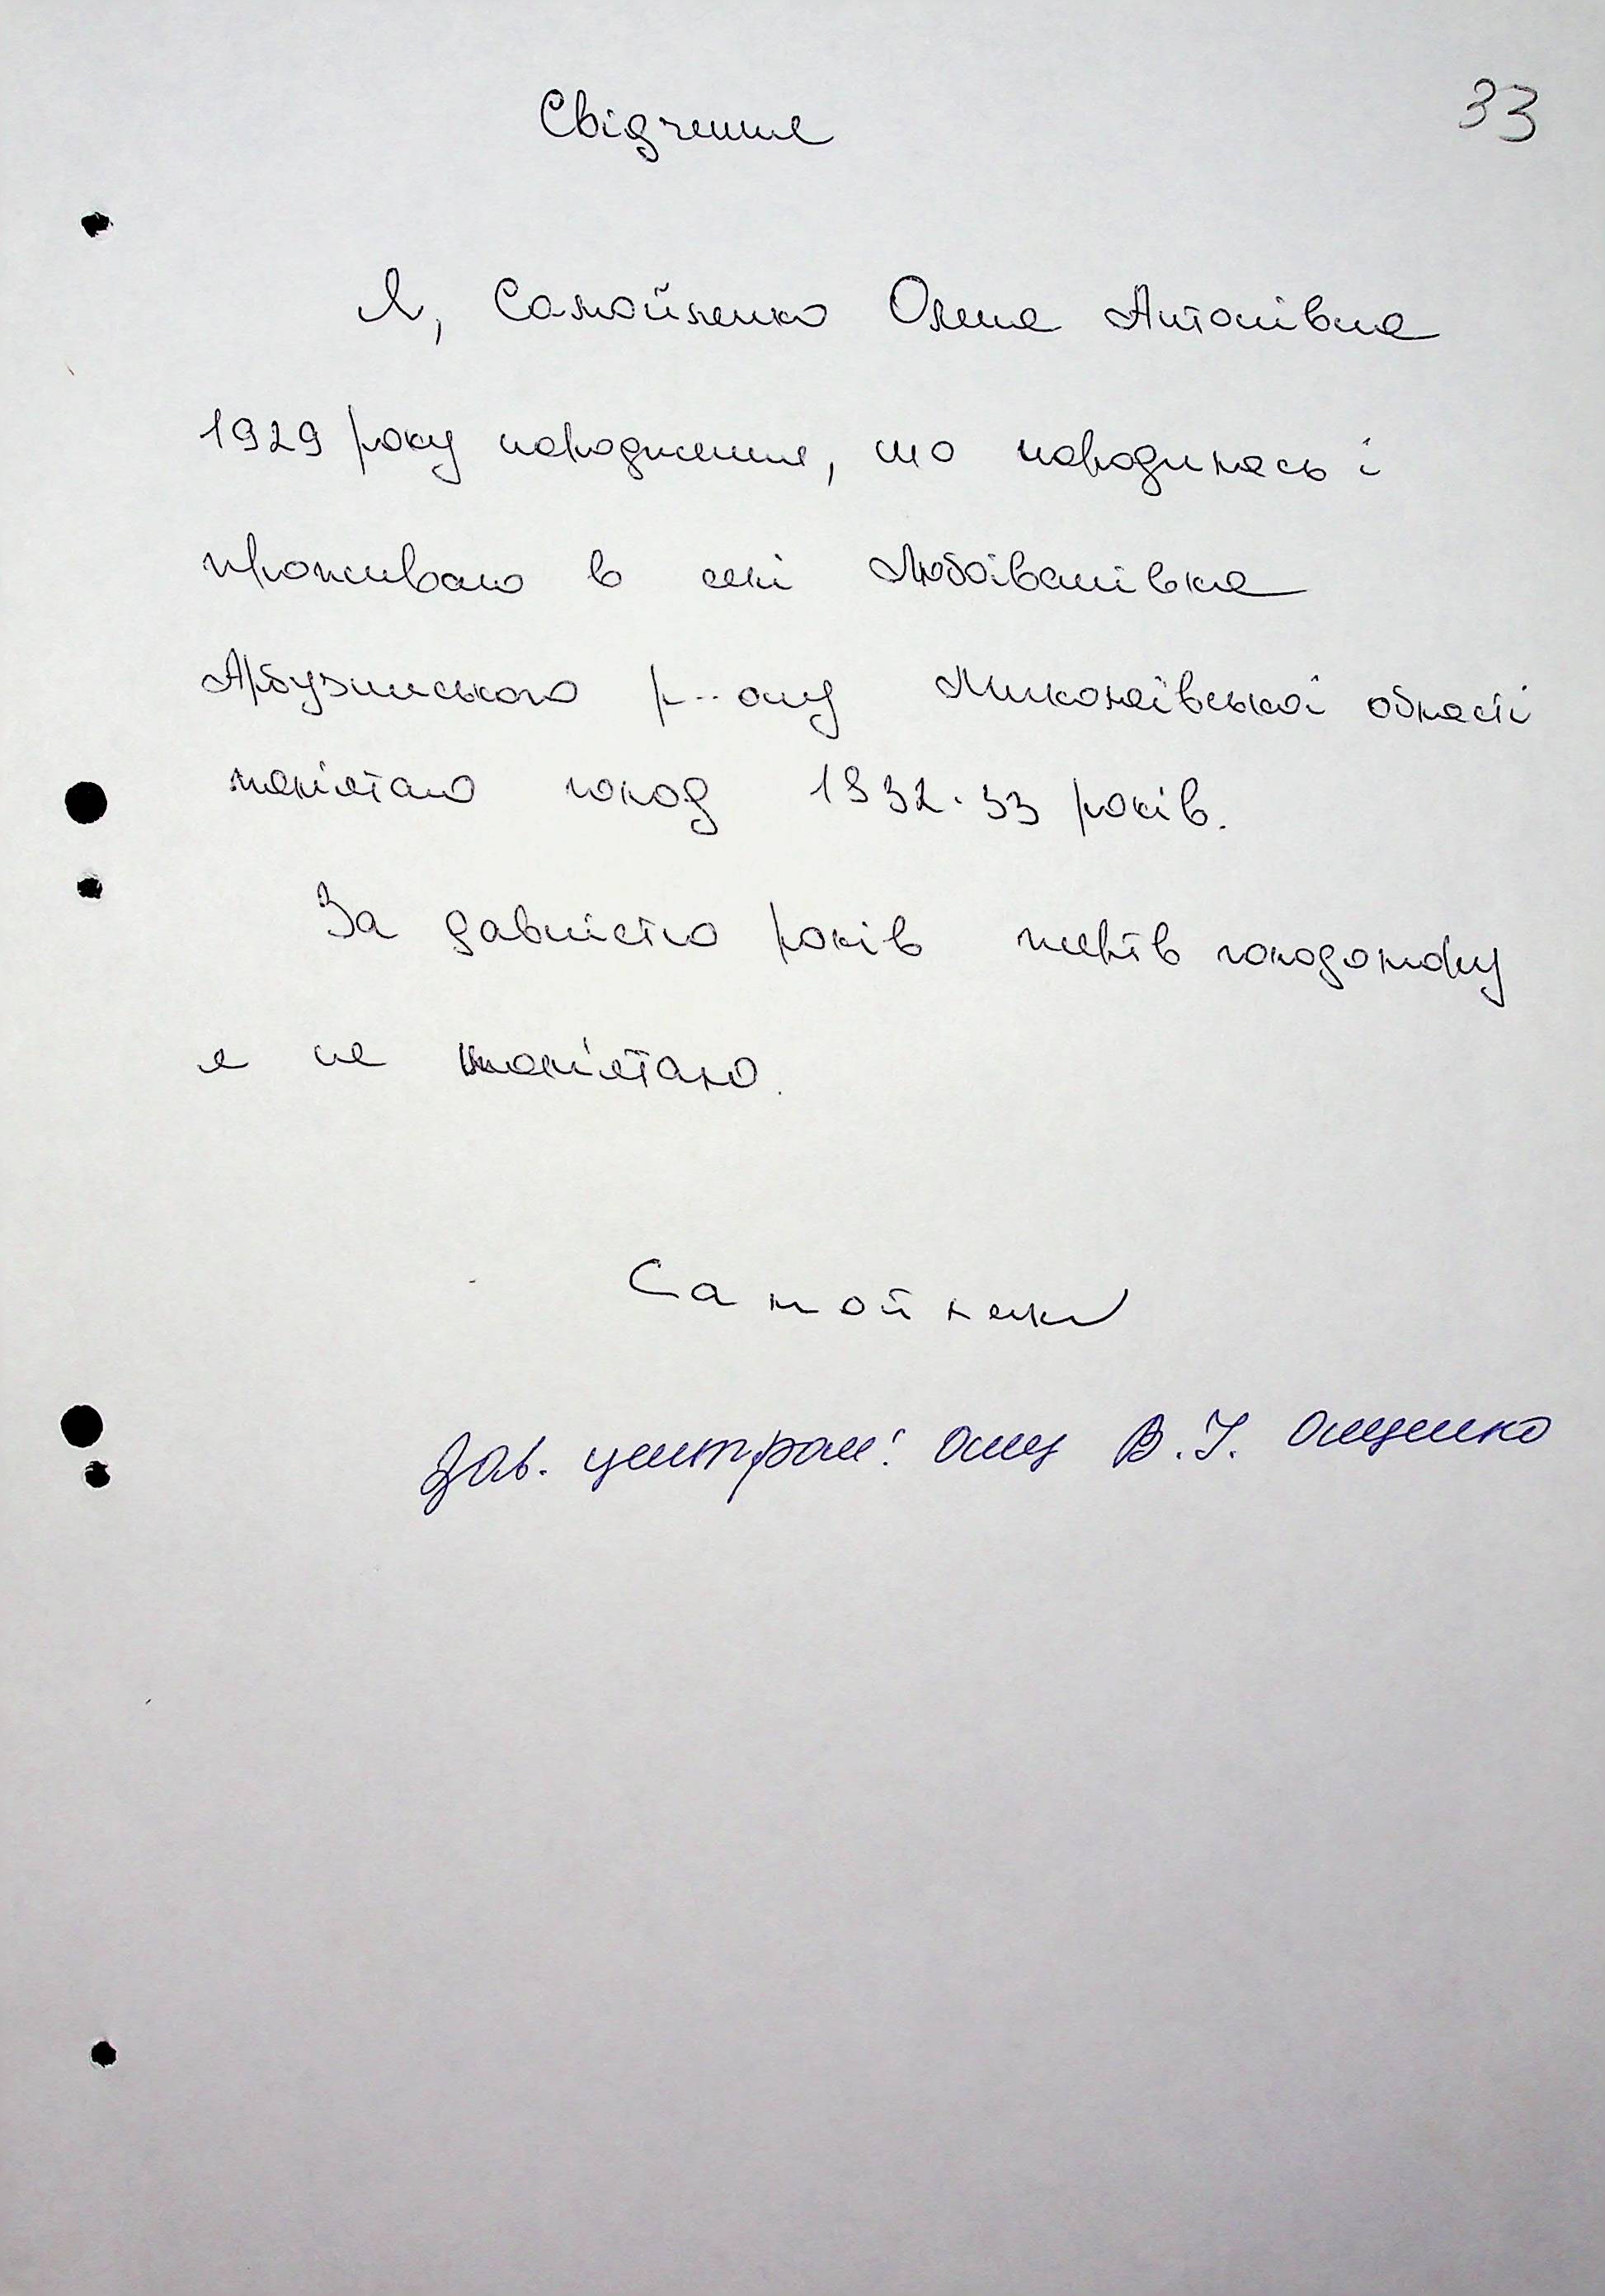 33
Свідчення
Я, Самойленко Олена Антонівна
1929 року народження, що народилась і
проживаю в селі Любоіванівка
Арбузинського р-ону Миколаївської області
пам'ятаю голод 1932-33 років.
За давністю років жертв голодомору
я не пам'ятаю.
Самойленко
Зав. центром: Ощ В. І. Ощенко